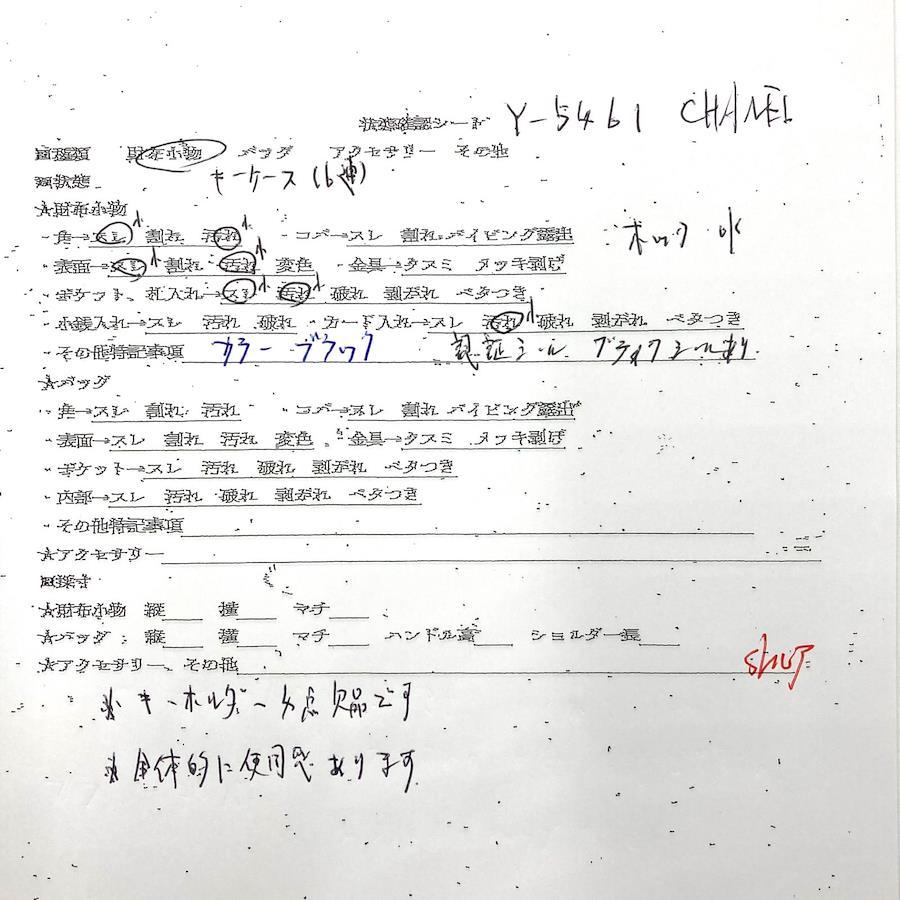 状態確認シート Y-5461 CHANEL
■種類 財布小物 バッグ アクセサリー その他
■状態 キーケース(6連)
★財布小物
・角→スレ小 割れ 汚れ小 ・コバ→スレ 割れ パイピング露出 ホック 小
・表面→スレ小 割れ 汚れ小 変色 ・金具→クスミ メッキ剥げ
・ポケット、札入れ→スレ小 汚れ小 破れ 剥がれ ベタつき
・小銭入れ→スレ 汚れ 破れ ・カード入れ→スレ 汚れ小 破れ 剥がれ ベタつき
・その他特記事項 カラー ブラック 認証シール ブティックシールあり
★バッグ
・角→スレ 割れ 汚れ ・コバ→スレ 割れ パイピング露出
・表面→スレ 割れ 汚れ 変色 ・金具→クスミ メッキ剥げ
・ポケット→スレ 汚れ 破れ 剥がれ ベタつき
・内部→スレ 汚れ 破れ 剥がれ ベタつき
・その他特記事項
★アクセサリー
■採寸
★財布小物 縦 横 マチ
★バッグ 縦 横 マチ ハンドル高 ショルダー長
★アクセサリー、その他
※キーホルダー1点欠品です
※全体的に使用感あります